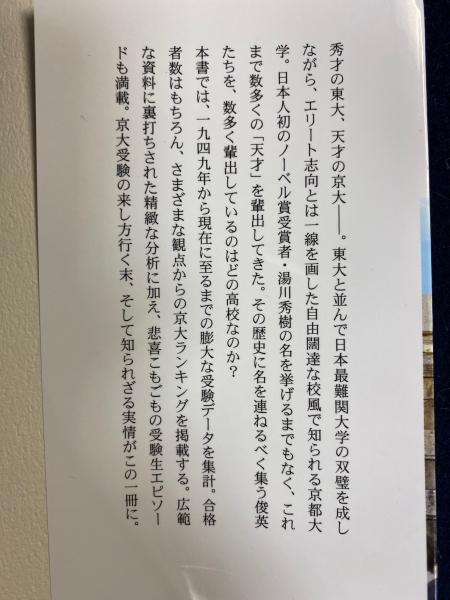 秀才の東大、天才の京大――。東大と並んで日本最難関大学の双璧を成し
ながら、エリート志向とは一線を画した自由闊達な校風で知られる京都大
学。日本人初のノーベル賞受賞者・湯川秀樹の名を挙げるまでもなく、これ
まで数多くの「天才」を輩出してきた。その歴史に名を連ねるべく集う俊英
たちを、数多く輩出しているのはどの高校なのか?
本書では、一九四九年から現在に至るまでの膨大な受験データを集計。合格
者数はもちろん、さまざまな観点からの京大ランキングを掲載する。広範
な資料に裏打ちされた精緻な分析に加え、悲喜こもごもの受験生エピソー
ドも満載。京大受験の来し方行く末、そして知られざる実情がこの一冊に。